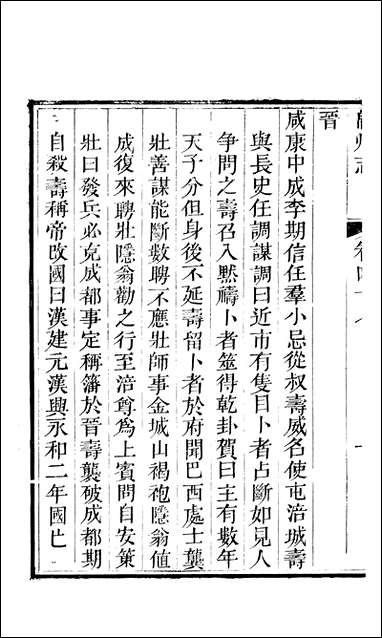 晉
咸康中成李期信任羣小忌從叔壽威名使屯涪城壽
與長史任調謀調曰近市有隻目卜者占斷如見人
争問之壽召入默禱卜者筮得乾卦賀曰主有數年
天子分但身後不延壽留卜者於府聞巴西處士龔
壯善謀能斷數聘不應壯師事金城山褐袍隱翁值
成復來聘壯隱翁勸之行至涪尊爲上賓問自安策
壯曰發兵必克成都事定稱籓於晉壽襲破成都期
自殺壽稱帝改國曰漢建元漢興永和二年國亡